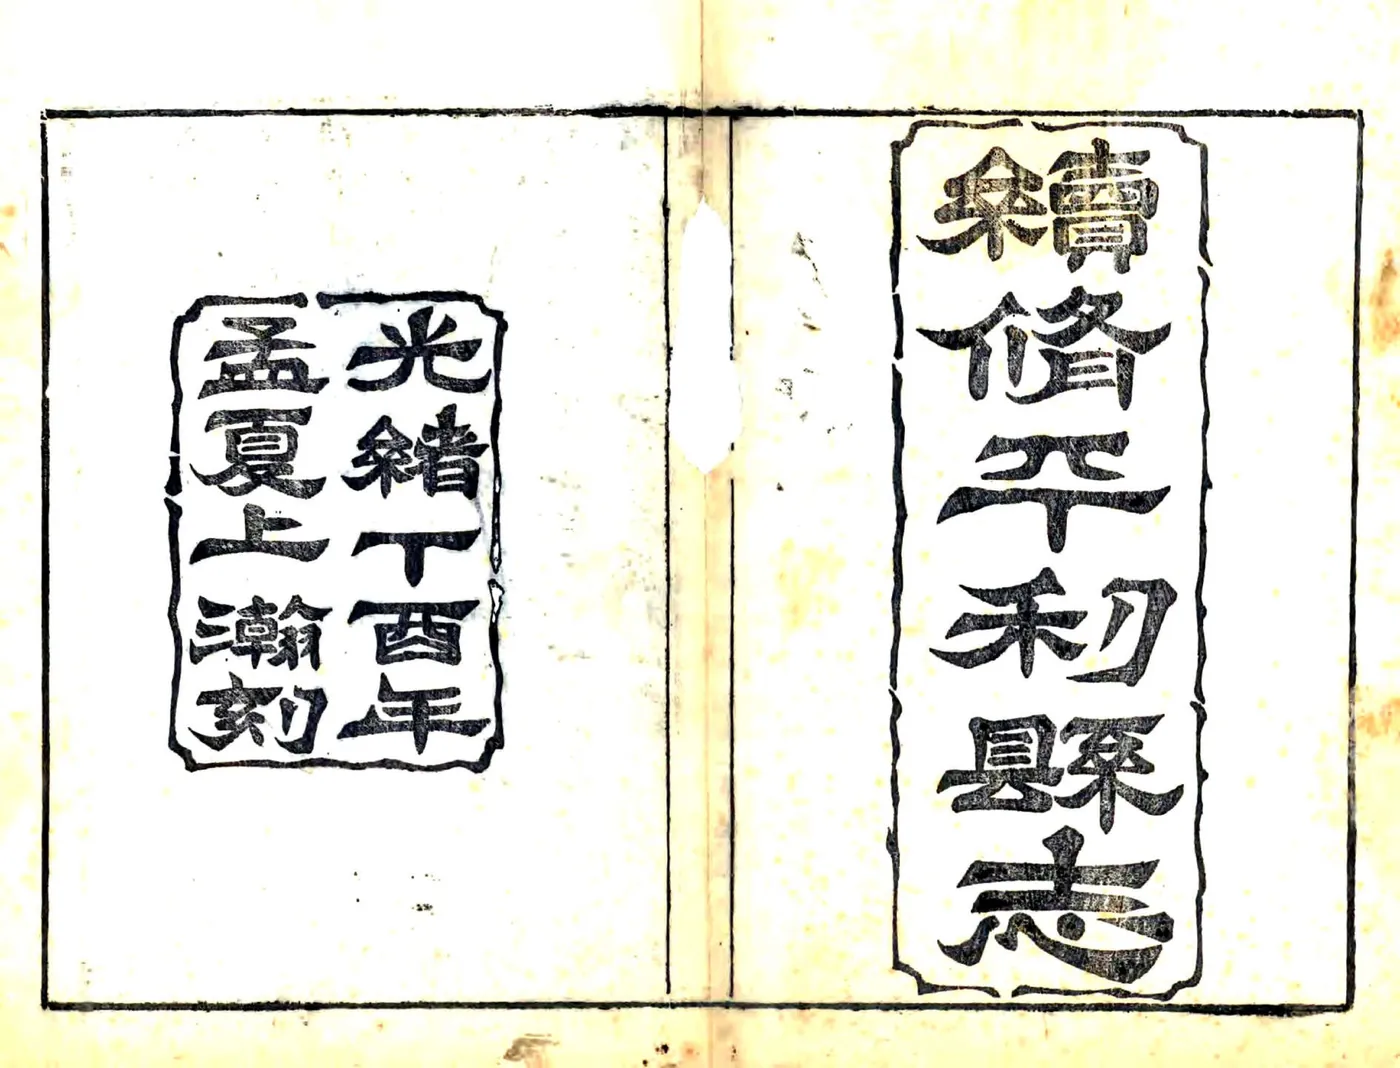 續脩平利縣志
光緒丁酉年
孟夏上瀚刻